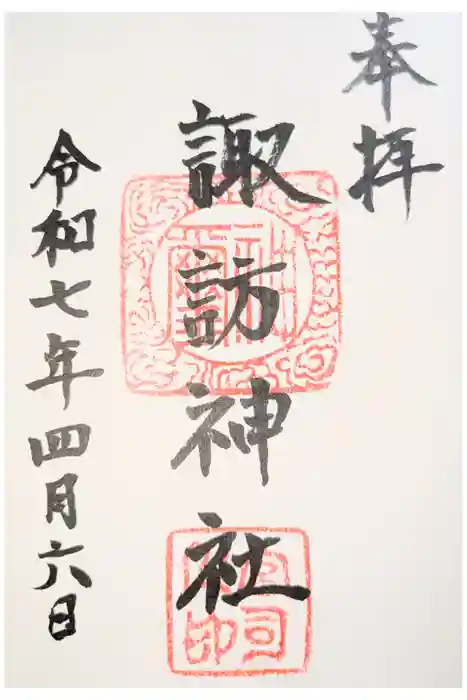 奉拝
諏訪神社
令和七年四月六日